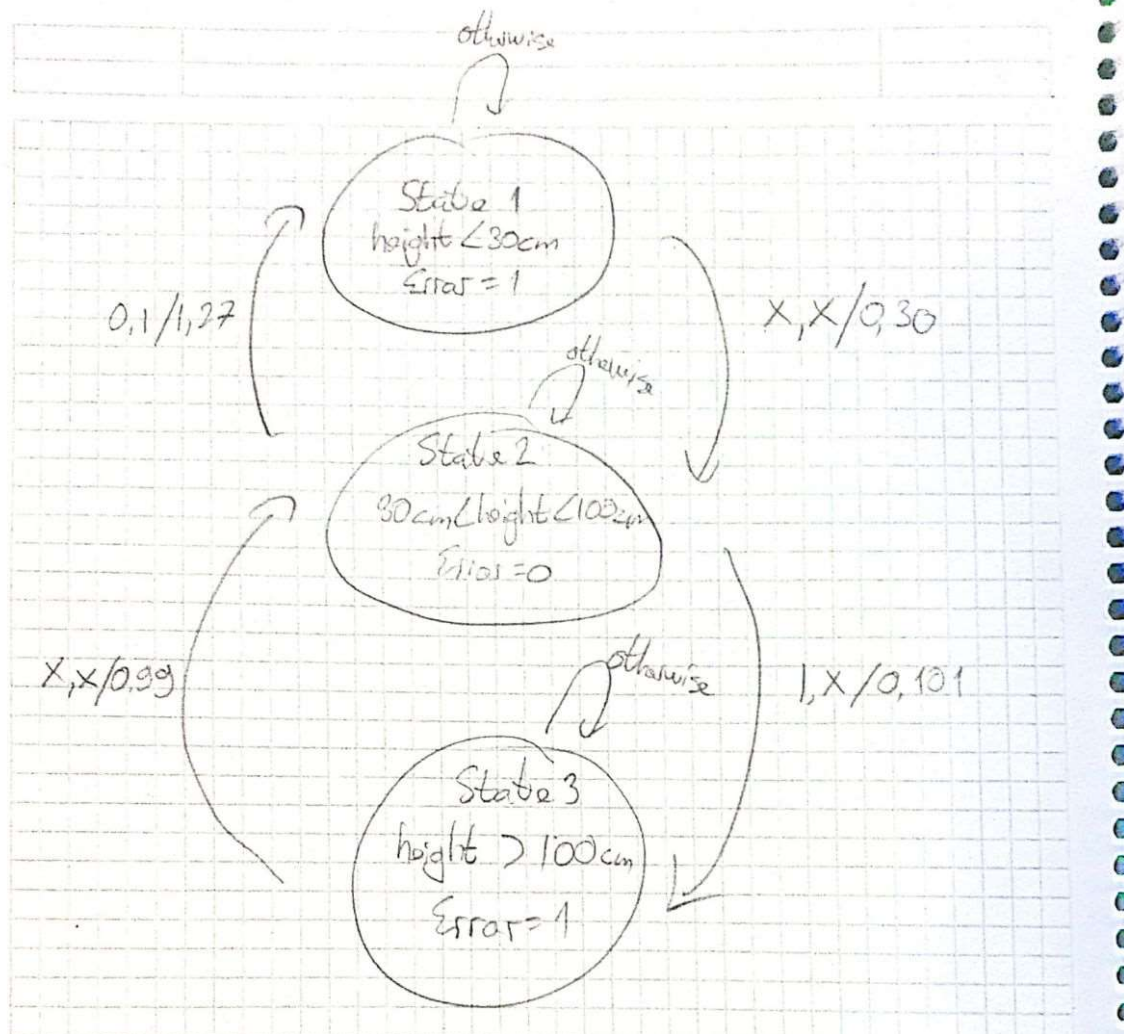 otherwise
State 1
height <30cm
Error = 1
0,1/1,27
X,X/0,30
otherwise
State 2
30cm<height<100cm
Error=0
X,x/0,99
otherwise
1,X/0,101
State 3
height > 100cm
Error=1